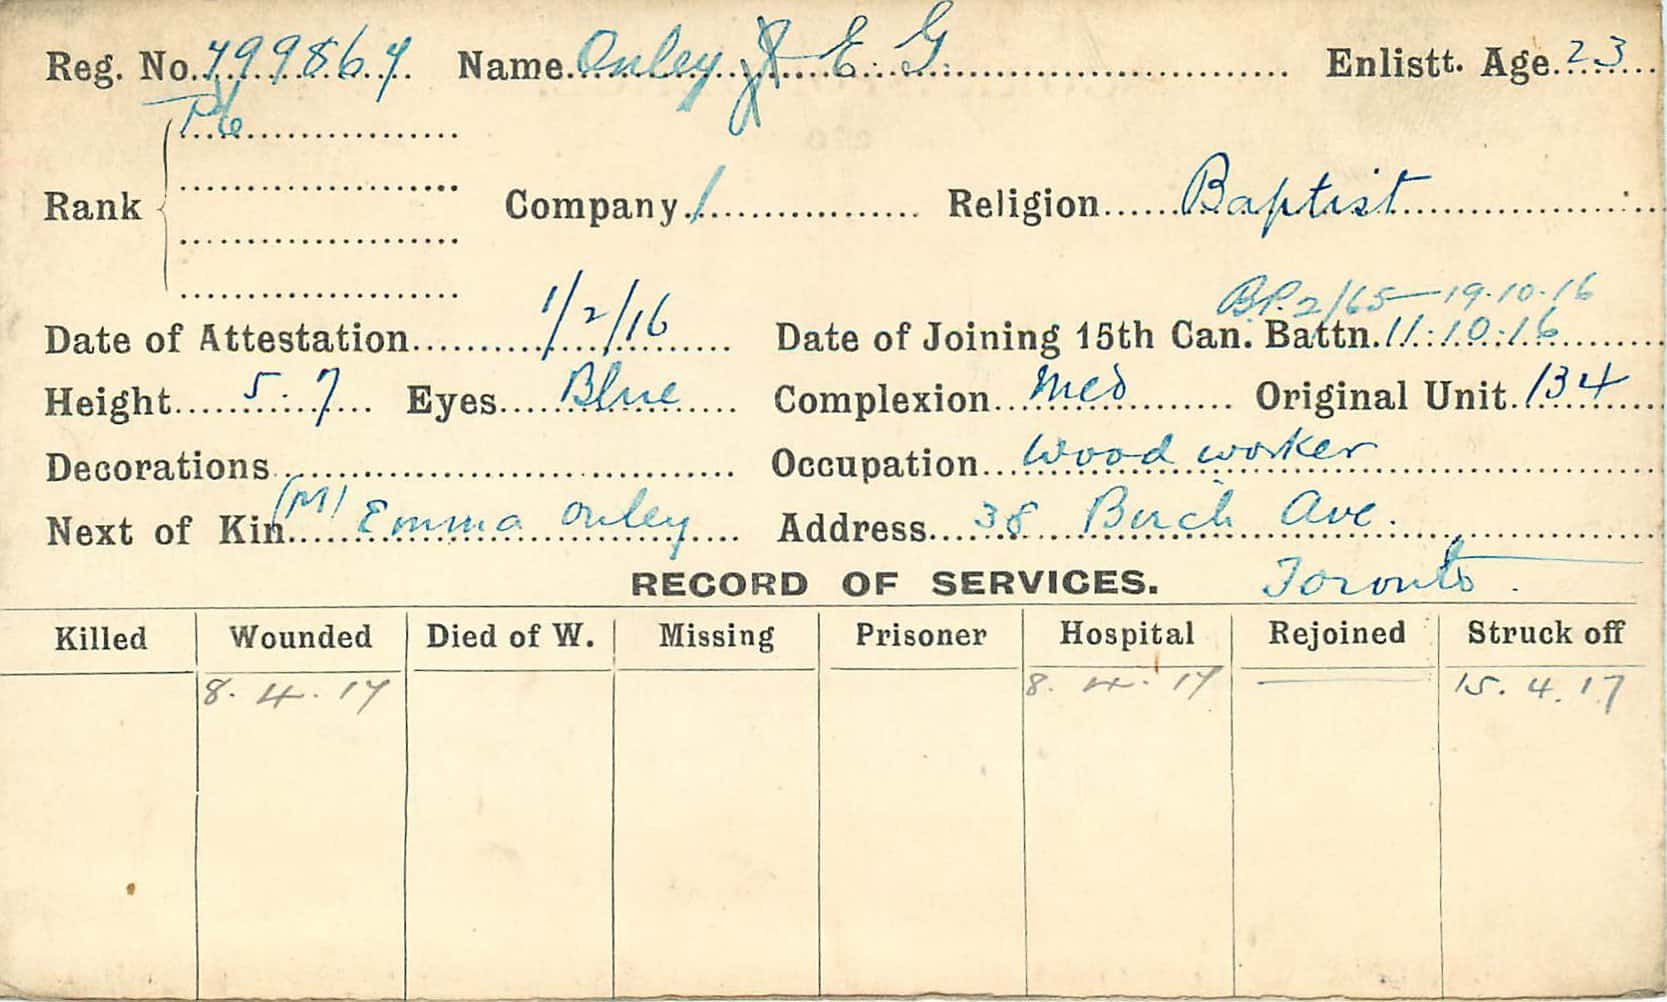 Reg. No. 799867 Name Onley E. G. Enlistt. Age. 23
Pte
Rank Company 1 Religion Baptist
BP. 2/65 — 19.10.16
Date of Attestation 1/2/16 Date of Joining 15th Can. Battn. 11:10:16
Height 5.7 Eyes Blue Complexion Med Original Unit 134
Decorations Occupation Wood worker
Next of Kin (M) Emma Onley Address 38 Birch Ave.
RECORD OF SERVICES. Toronto.
Killed Wounded Died of W. Missing Prisoner Hospital Rejoined Struck off
8.4.17 8.4.17 15.4.17